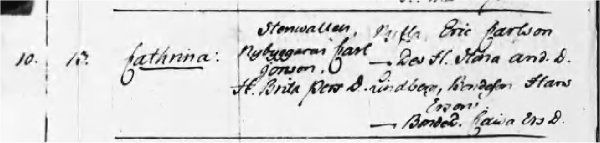 10. 13. Cathrina:
Stenvallen,
Nybyggaren Carl
Jonson.
H. Brita Pers D.
Eric Carlson
H. Stina And. D.
Lindberg, Bondeson Hans
Ersson
Bonded. Cajsa Ers D.